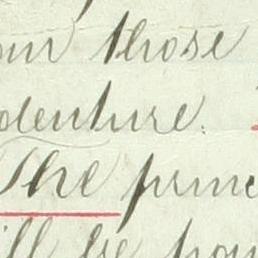 those
denture.
The princ
ill be